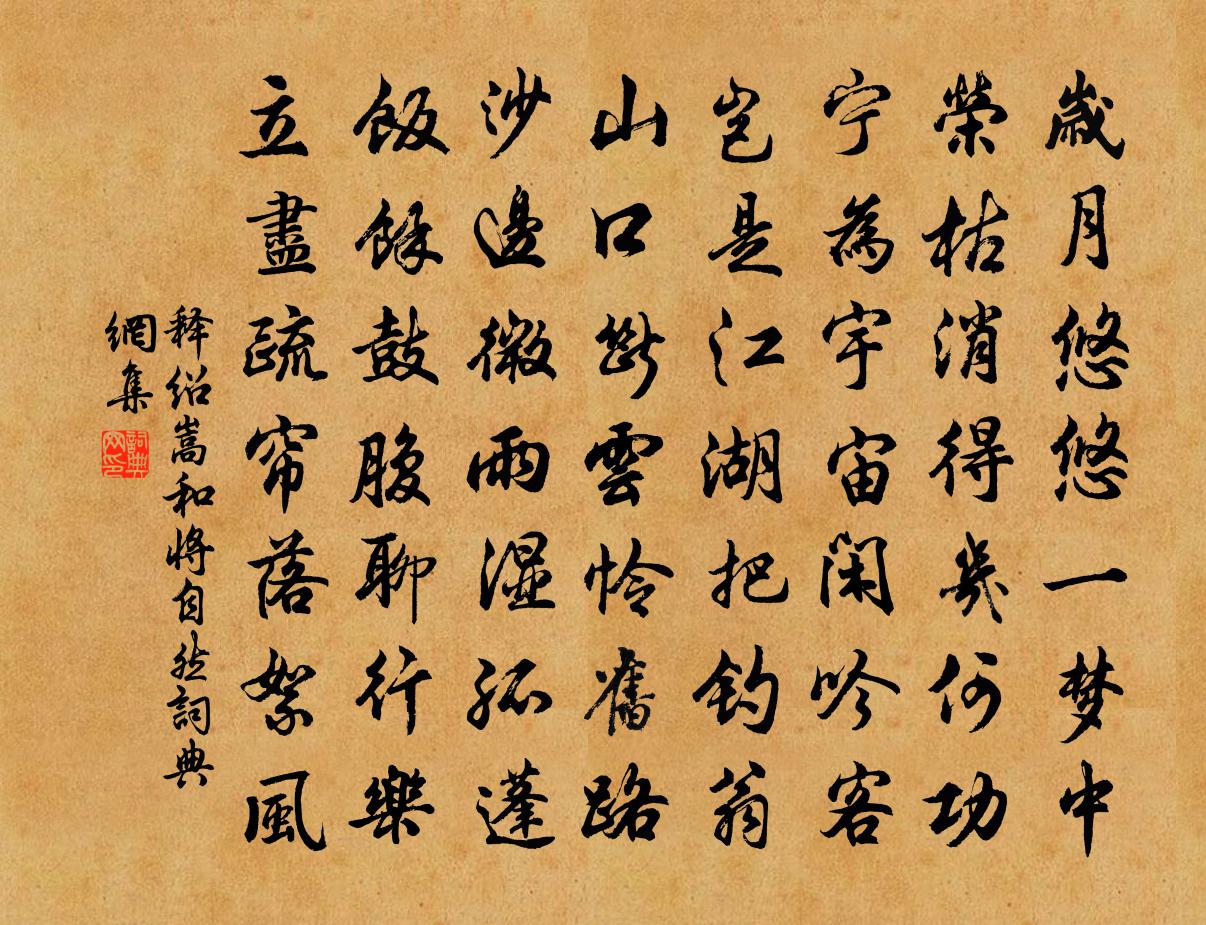 歲月悠悠一梦中
榮枯消得幾何功
宁為宇宙闲吟客
岂是江湖把钓翁
山口断雲怜舊路
沙邊微雨湿孤蓬
飯餘鼓腹聊行樂
立盡疏帘落絮風
释绍嵩和将自然詞典
網集
詞典網印